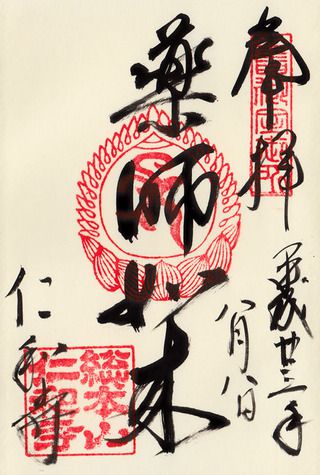 奉拝
平成廿三年
八月八日
薬師如来
仁和寺
総本山
仁和寺